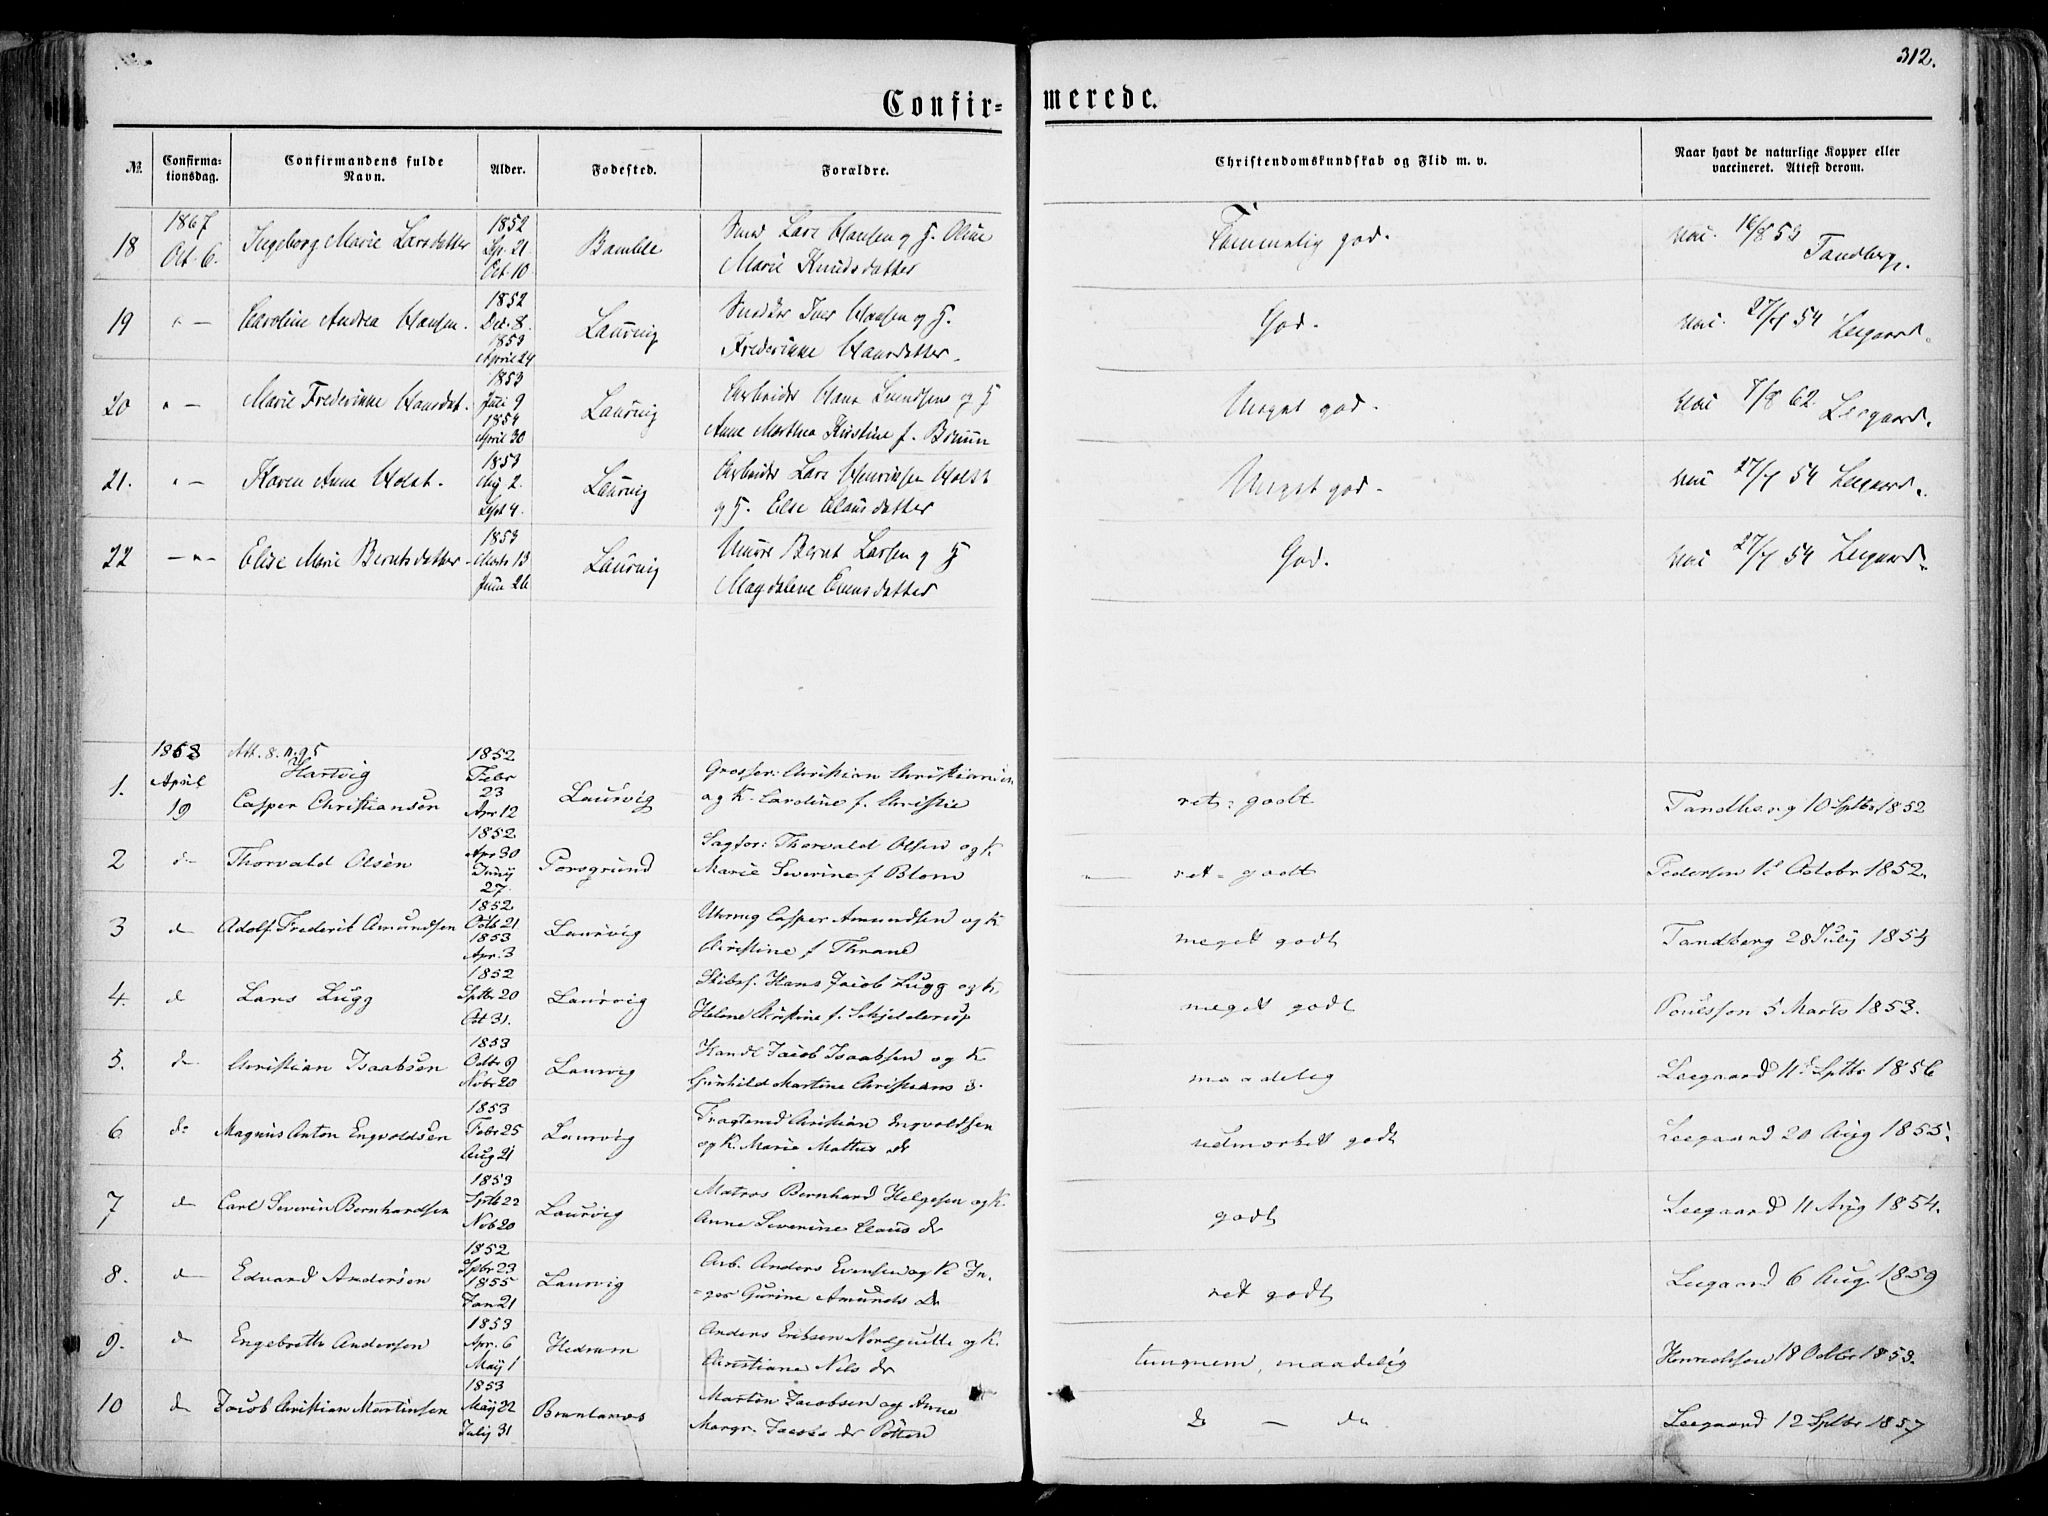 312.
Confir=
merede.
№.
Confirma-
tionsdag.
Confirmandens fulde
Navn.
Alder.
Fødested.
Forældre.
Christendomskundskab og Flid m. v.
Naar havt de naturlige Kopper eller
vaccineret. Attest derom.
18
1867
Oct. 6.
Ingeborg Marie Larsdatter
1852
Sp. 21
Oct. 10
Bamble
Smed Lars Hansen og H. Oline
Marie Knudsdatter
Temmelig god.
vac. 16/8 53
Tandberg.
19
" —
Caroline Andrea Hansen.
1852
Dec. 8.
1853
April 24
Laurvig
Snedker Iver Hansen og H.
Frederikke Hansdatter.
God.
vac. 27/7 54 Leegaard.
20
" —
Marie Frederikke Hansdat.
1853
Juli 9
1854
April 30
Laurvig
Arbeider Hans og H
Anne Marthea Kirstine f. Bruun
Meget god.
vac 7/8 62 Leegaard.
21.
" —
Karen Anne Holst.
1853
Aug 2.
Sept 4.
Laurvig
Arbeider Lars Henriksen Holst
og H. Else Clausdatter
Meget god.
vac 27/7 54 Leegaard.
22
— " —
Elise Marie Berntsdatter
1853
Marts 13
Juni 26
Laurvig
Murer Bernt Larsen og H
Magdalene Evensdatter
God.
vac 27/7 54 Leegaard.
1868
1.
April
19
Att. 8. n. 95
Hartvig
Casper Christiansen
1852
Febr
23
Apr 12
Laurvig
Grosser: Christian Christiansen
og K. Caroline f. Christie
ret: godt
Tandberg 10 Sptbr 1852
2
d
Thorvald Olsen
1852
Apr 30
Junij
27.
Porsgrund
Sagfør: Thorvald Olsen og K
Marie Severine f Blom
ret: godt
Pedersen 1e Octobr 1852.
3
d
Adolf Frederik Amundsen
1852
Octb 21
1853
Apr. 3
Laurvig
Uhrmg Casper Amundsen og K
Christine f Thrane
meget godt
Tandberg 28 July 1854
4.
d
Lars Lugg
1852
Sptbr 20
Oct 31.
Laurvig
Skibsf. Hans Jacob Lugg og K
Helene Christine f. Schjelderup
meget godt
Poulsson 5 Marts 1853.
5.
d
Christian Isaaksen
1853
Octbr 9
Nvbr 20
Laurvig
Handl Jacob Isaaksen og K
Gunhild Martine Christians d.
maadelig
Leegaard 11. Sptbr 1856
6
do
Magnus Anton Engvoldsen
1853
Febr 25
Aug 21
Laurvig
Fragtemd Christian Engvoldsen
og K. Marie Mattis dr
udmærket godt
Leegaard 20 Aug 1855.
7
d
Carl Severin Bernhardsen
1853
Sptb 22
Nvb 20
Laurvig
Matros Bernhard Helgesen og K.
Anne Severine Claus dr
godt
Leegaard 11 Aug 1854.
8.
d
Edvard Andersen
1852
Sptbr 23
1855
Jan 21
Laurvig
Arb. Anders Evensen og K In-
=ger Gurine Amunds Dr
ret godt
Leegaard 6 Aug. 1859
9.
d
Engebreth Andersen
1853
Apr. 6
May 1
Hedrum
Anders Eriksen og K.
Christiane Nils dr
tungnem, maadelig
Henrichsen 18 Octbr 1853.
10
d
Jacob Christian Martinsen
1853
May 22
July 31
Brunlanæs
Martin Jacobsen og Anne
Margr. Jacobs dr
d — do
Leegaard 12 Sptbr 1857